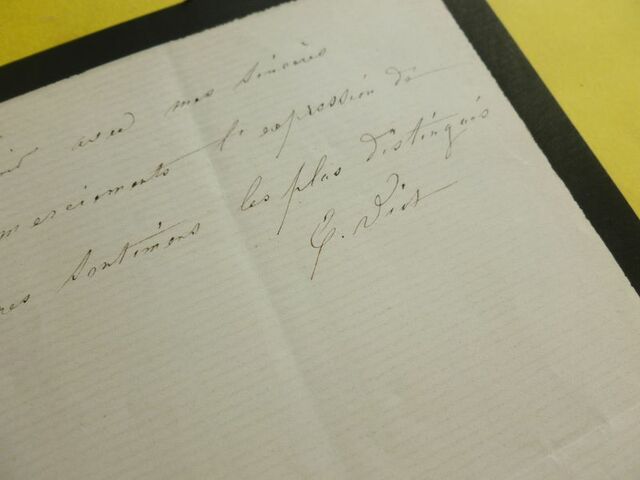 avec mes sincères
merciements l'expression de
sentimens les plus distingués
E. Viet